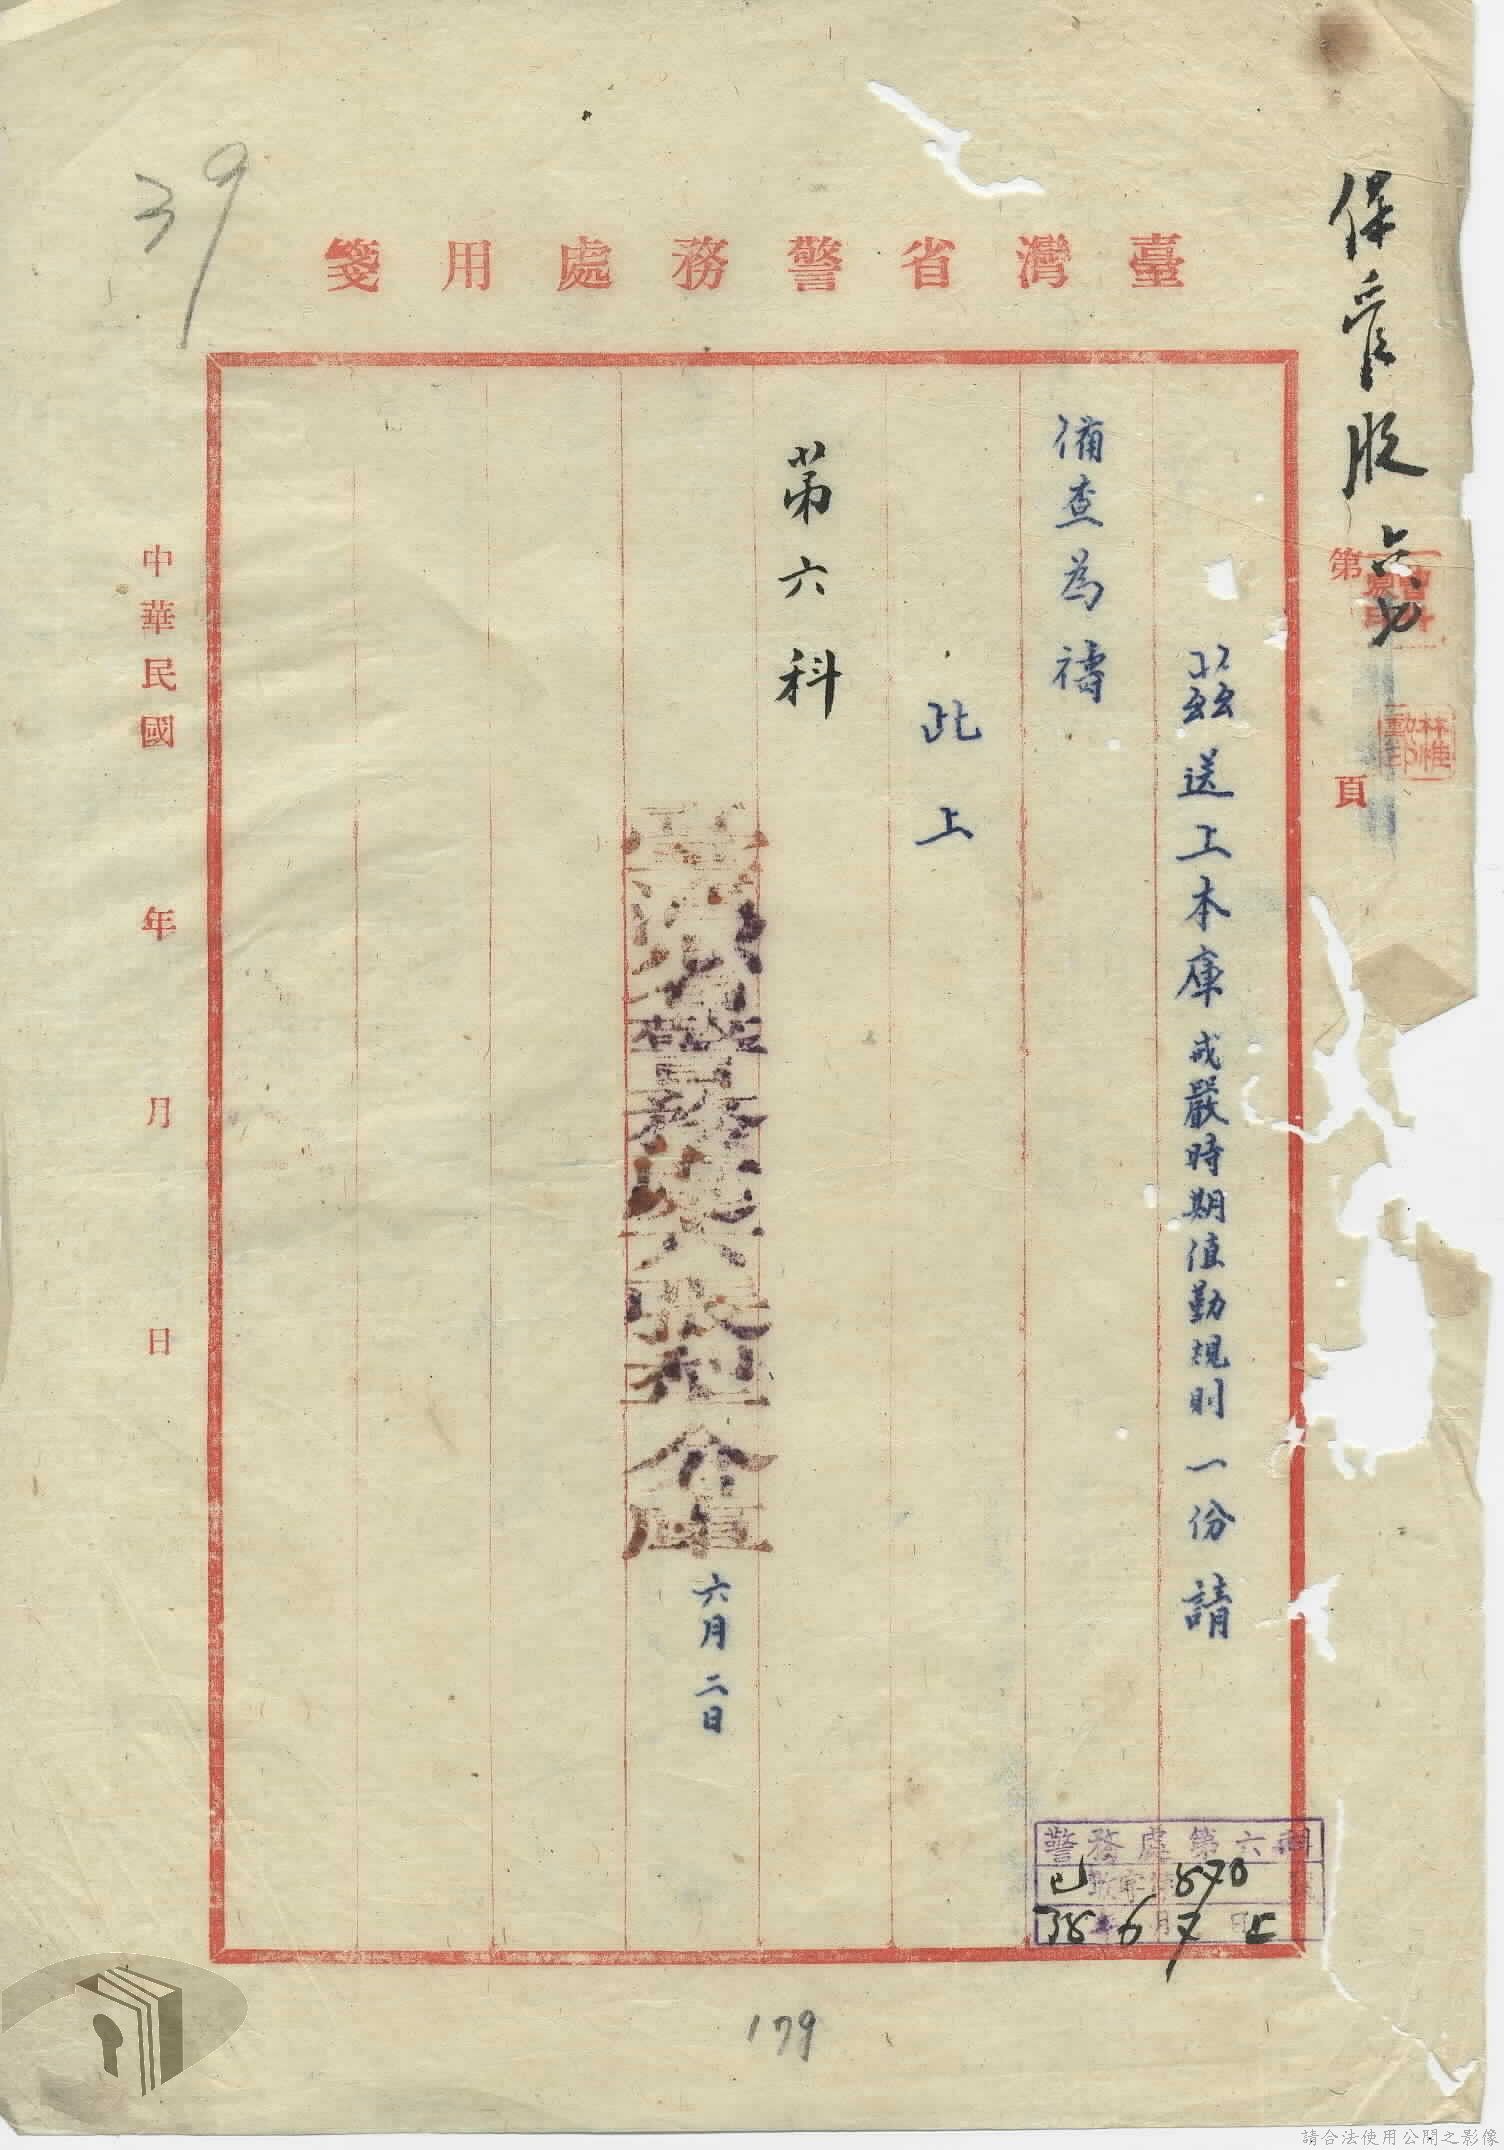 39
臺灣省警務處用箋
保管股 六、七
第 頁
茲送上本庫戒嚴時期值勤規則一份請
備查為禱
此上
第六科
臺灣省警務處第六股
分庫
六月二日
中華民國 年 月 日
警務處第六科
870
38年6月7日
179
請合法使用公開之影像